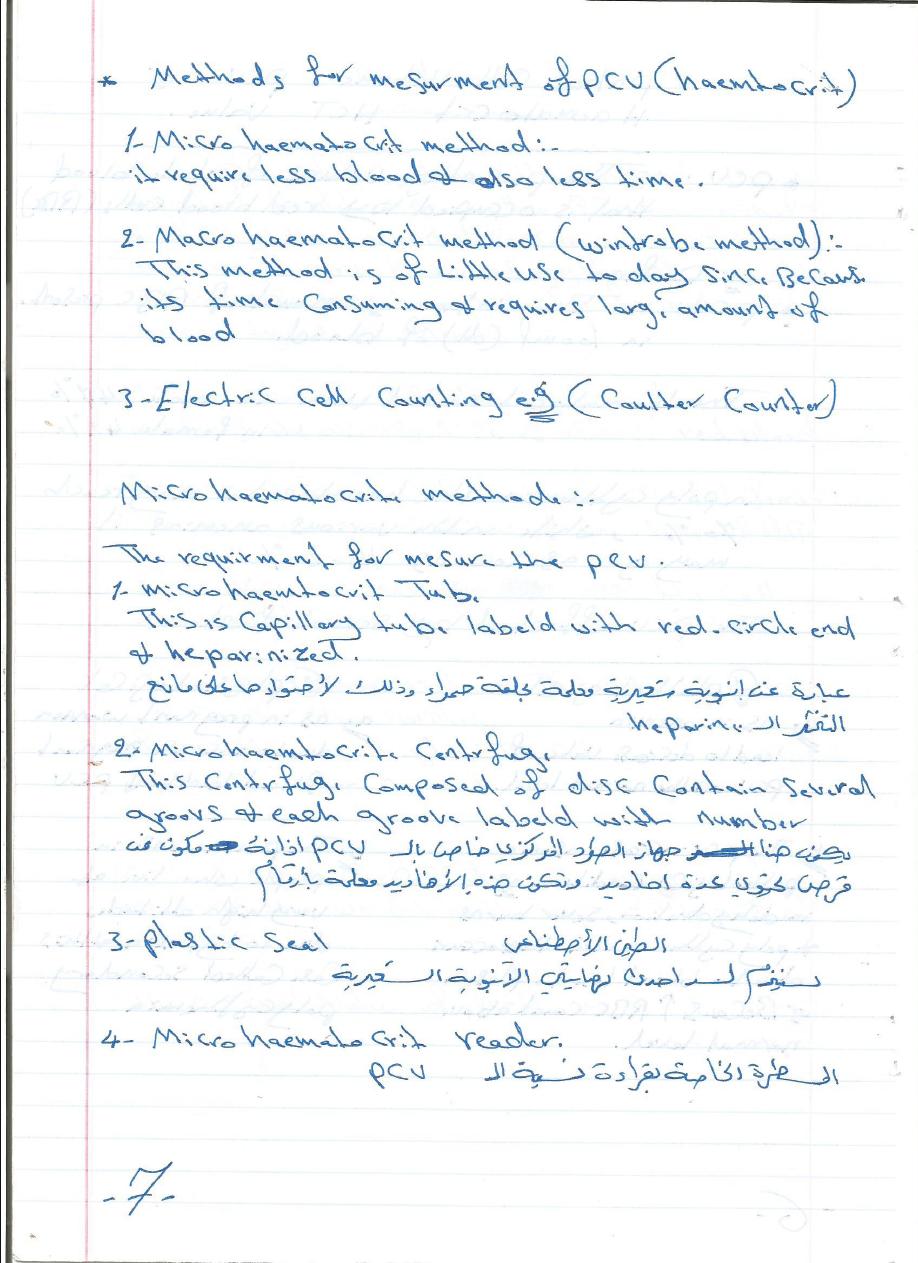 * Methods for mesurment of PCV (haemtocrit)
1- Micro haematocrit method:-
it require less blood & also less time.
2- Macro haematocrit method (wintrobe method):-
This method is of Little use to day Since Becaus.
its time Consuming & requires large amount of
blood
3- Electric Cell Counting e.g (Coulter Counter)
Microhaematocrite methode:-
The requirment for mesure the pcv.
1- microhaemtocrit Tube
This is Capillary tube labeld with red-circle end
& heparinized.
عبارة عن انبوبة شعيرية معلمة بحلقة حمراء وذلك لأحتوادها على مانع
التخثر الـ heparine
2- Microhaemtocrite Centrfuge
This Centrfuge Composed of disc Contain Several
groovs & each groove labeld with number
يكون هنا جهاز الطرد المركزي خاص بالـ PCV اذ انة مكون من
قرص يحتوي عدة اخاديد وتكون هذه الأخاديد معلمة بأرقام
3- plastic Seal الطين الأصطناعي
يستخدم لسد احدى نهايتي الأنبوبة الشعيرية
4- Micro haemato crit reader.
المسطرة الخاصة بقراءة نسبة الـ PCV
-7-